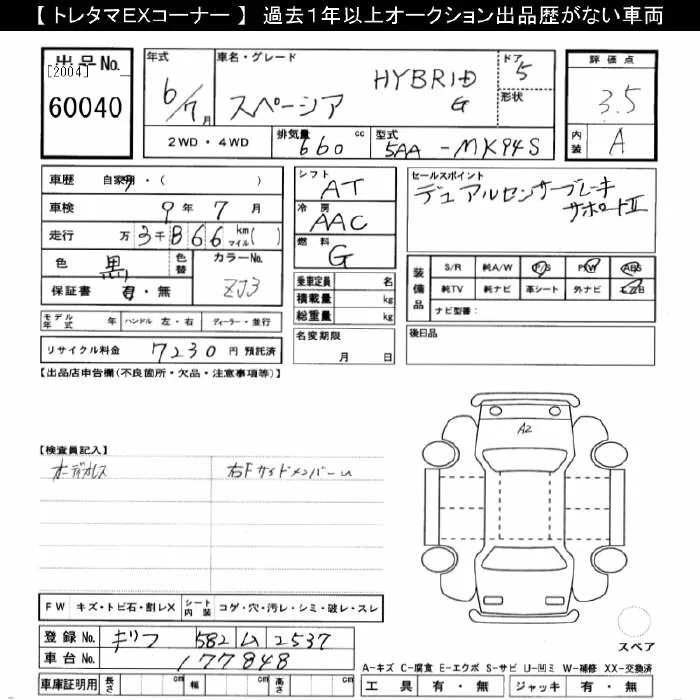 【 トレタマEXコーナー 】 過去1年以上オークション出品歴がない車両
出品No. [2004]
60040
年式 6/7月
車名・グレード スペーシア HYBRID G
ドア 5
形状
評価点 3.5
内装 A
2WD・4WD
排気量 660 cc
型式 5AA-MK94S
車歴 自家用・( )
車検 9年 7月
走行 万 3千866 km マイル( )
色 黒 色替
カラーNo. ZJ3
保証書 有・無
シフト AT
冷房 AAC
燃料 G
セールスポイント
デュアルセンサーブレーキ
サポートⅡ
装備品 S/R 純A/W P/S P/W ABS
純TV 純ナビ 革シート 外ナビ エアB
ナビ型番:
乗車定員 名
積載量 kg
総重量 kg
モデル年式 年 ハンドル 左・右 ディーラー・並行
名変期限 月 日
後日品
リサイクル料金 7230 円 預託済
【出品店申告欄(不良箇所・欠品・注意事項等)】
A2
【検査員記入】
オーディオレス 右Fサイドメンバーム
FW キズ・トビ石・割レX シート内装 コゲ・穴・汚レ・シミ・破レ・スレ
スペア
登録No. ギフ 582 ム 2537
車台No. 177848
車庫証明用 長さ cm 幅 cm 高さ cm
A-キズ C-腐食 E-エクボ S-サビ U-凹ミ W-補修 XX-交換済
工具 有・無 ジャッキ 有・無